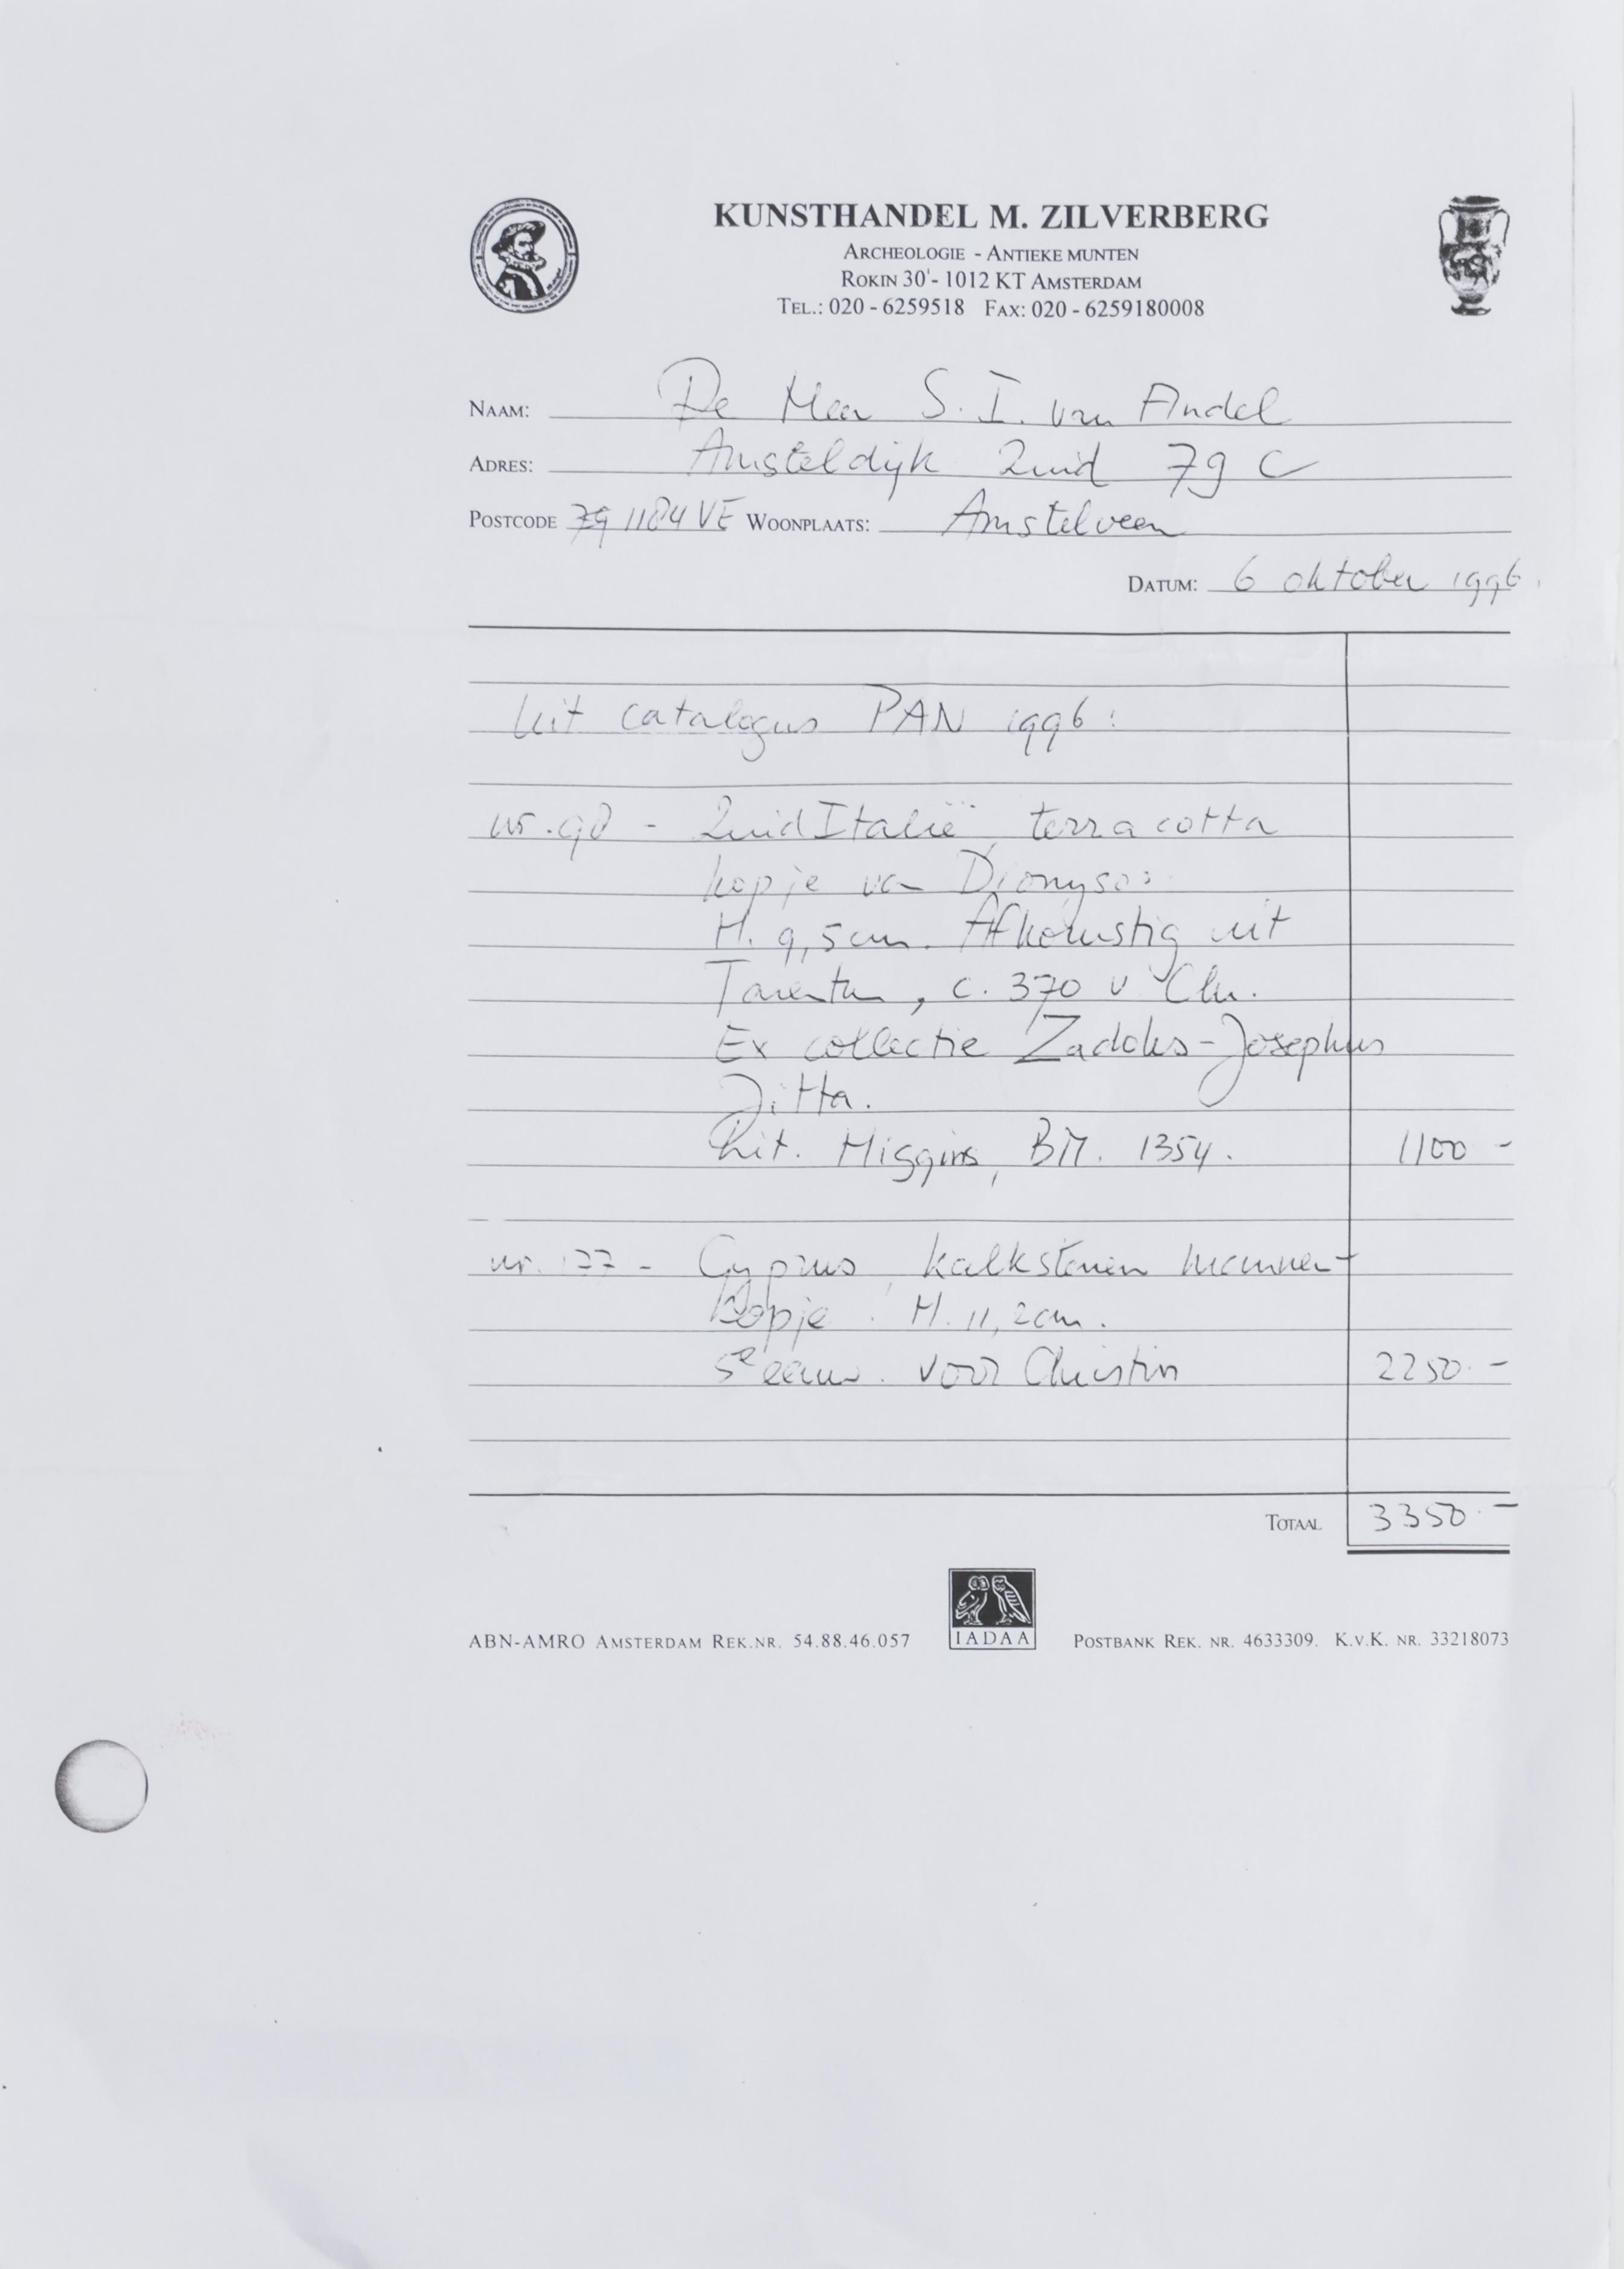 KUNSTHANDEL M. ZILVERBERG
ARCHEOLOGIE - ANTIEKE MUNTEN
ROKIN 30' - 1012 KT AMSTERDAM
TEL.: 020 - 6259518 FAX: 020 - 6259180008
NAAM: De Heer S. I. van Andel
ADRES: Amsteldijk Zuid 79 C
POSTCODE 79 1184 VE WOONPLAATS: Amstelveen
DATUM: 6 oktober 1996.
Uit catalogus PAN 1996:
nr. 98 - Zuid Italië, terracotta
kopje van Dionysos.
H. 9,5 cm. Afkomstig uit
Tarentum, c. 370 v Chr.
Ex collectie Zadoks-Josephus
Jitta.
Lit. Higgins, BM. 1354. 1100 -
nr. 177 - Cyprus, kalkstenen mannen-
kopje. H. 11,2cm.
5e eeuw. voor Christus 2250.-
TOTAAL 3350.-
ABN-AMRO AMSTERDAM REK.NR. 54.88.46.057 IADAA POSTBANK REK. NR. 4633309. K.V.K. NR. 33218073